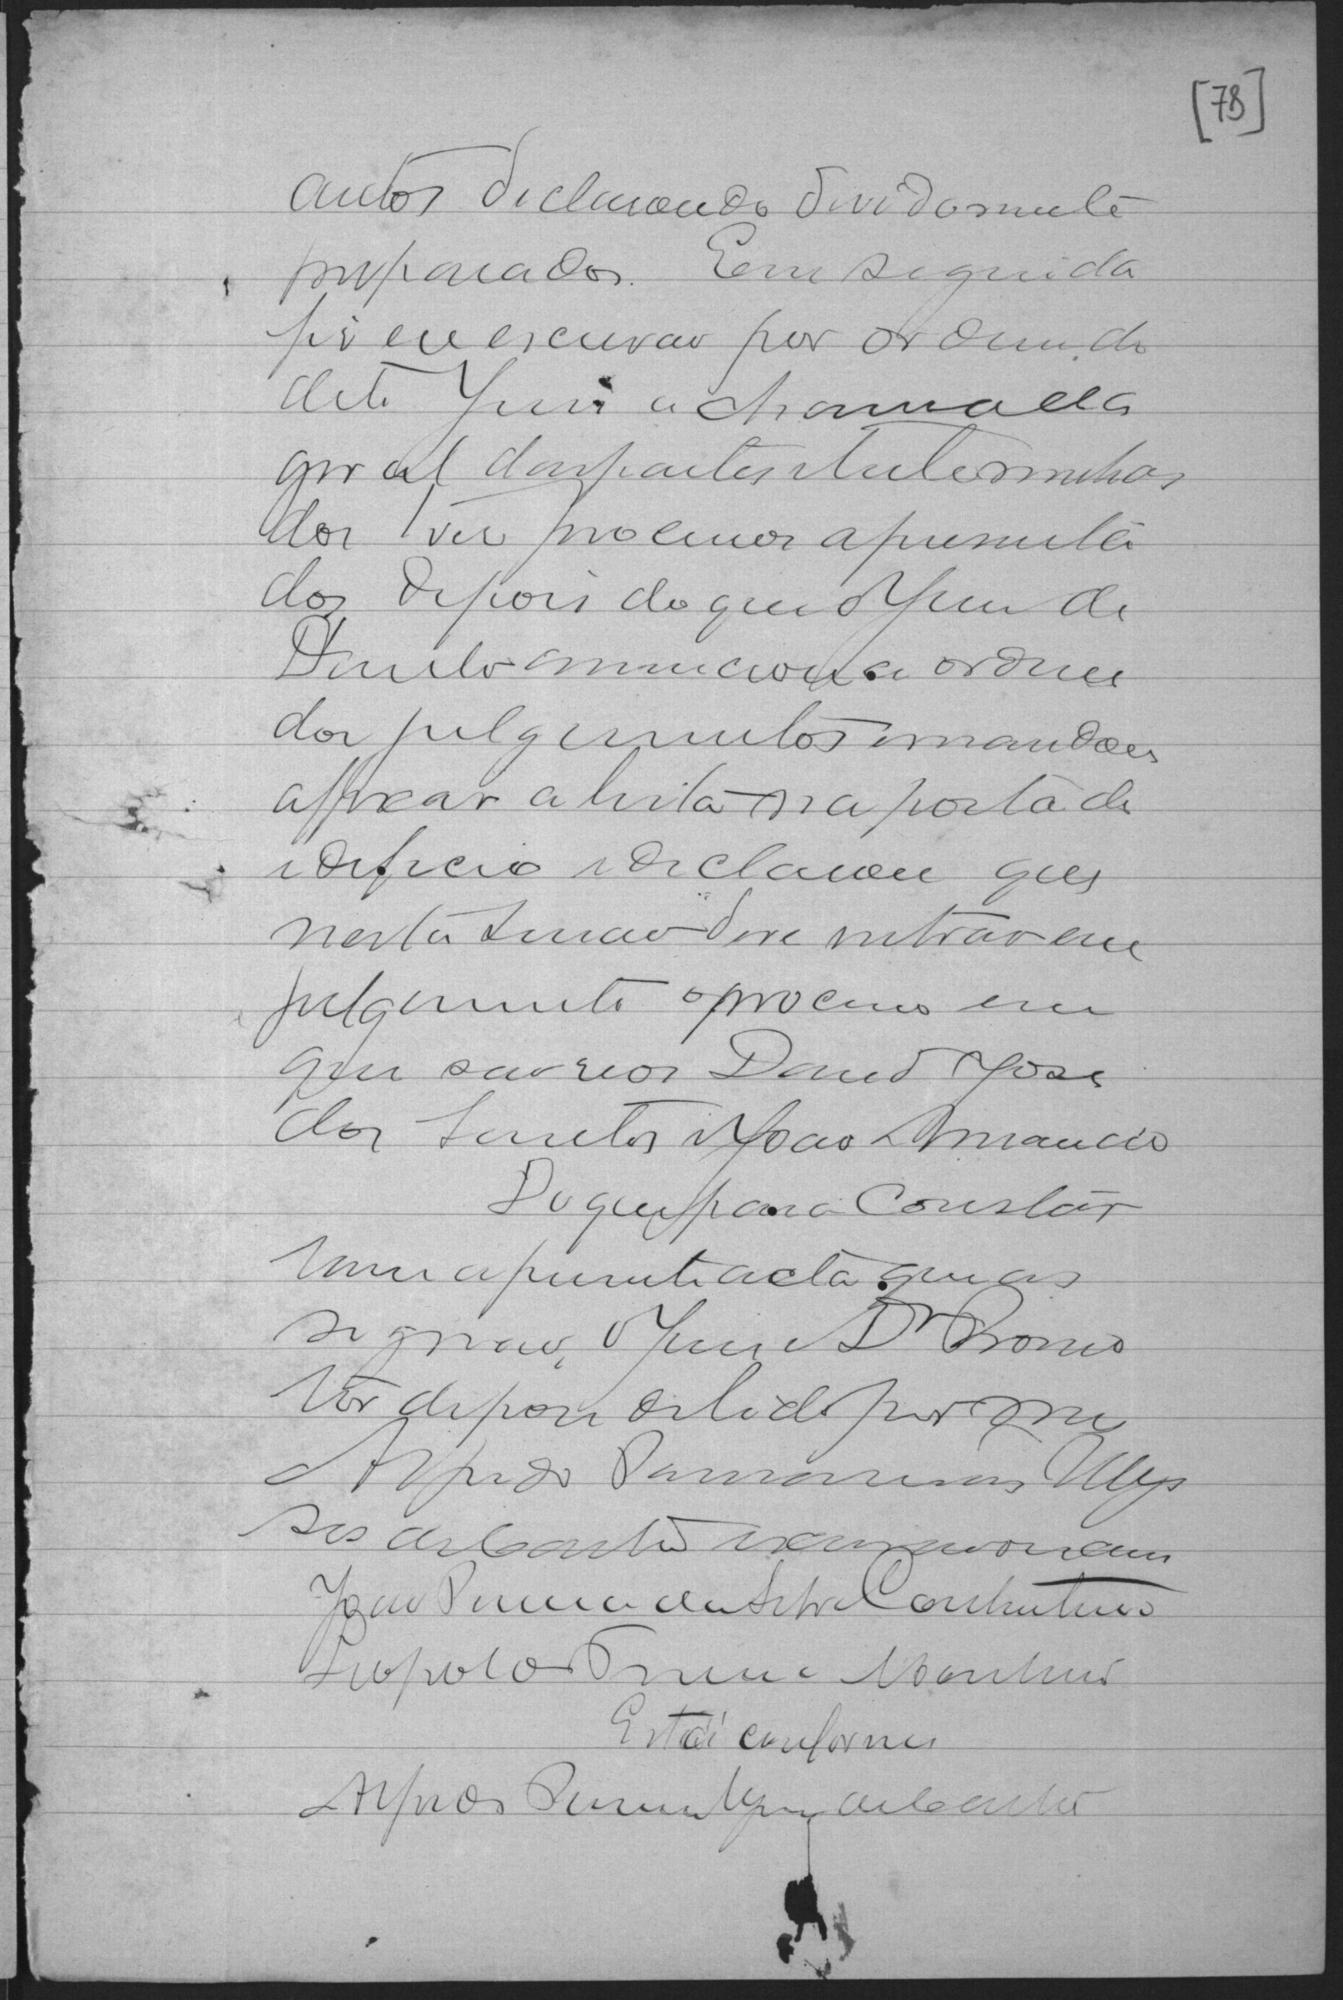 [78]
autos declarando devidamente
preparados. Em seguida
fiz eu escrivão por ordem do
dito Juiz a chamada
geral das partes e testemunhas
dos tres processos apresenta
dos depois do que o Juiz de
Direito annunciou a ordem
dos julgamentos e mandou
affixar a lista na porta do
edificio e declarou que
nesta sessão deve entrar em
julgamento o processo em
que são reos David José
dos Santos e João Amancio
Do que para constar
lavrei a presente acta que as
signão, o Juiz e Dr Promo
tor depois de lida por mim
Alfredo Ulys
ses de Castro escrivão o escrevi
João Pereira da Silva Continentino
Leopoldo Monteiro
Está conforme
Alfredo de Castro